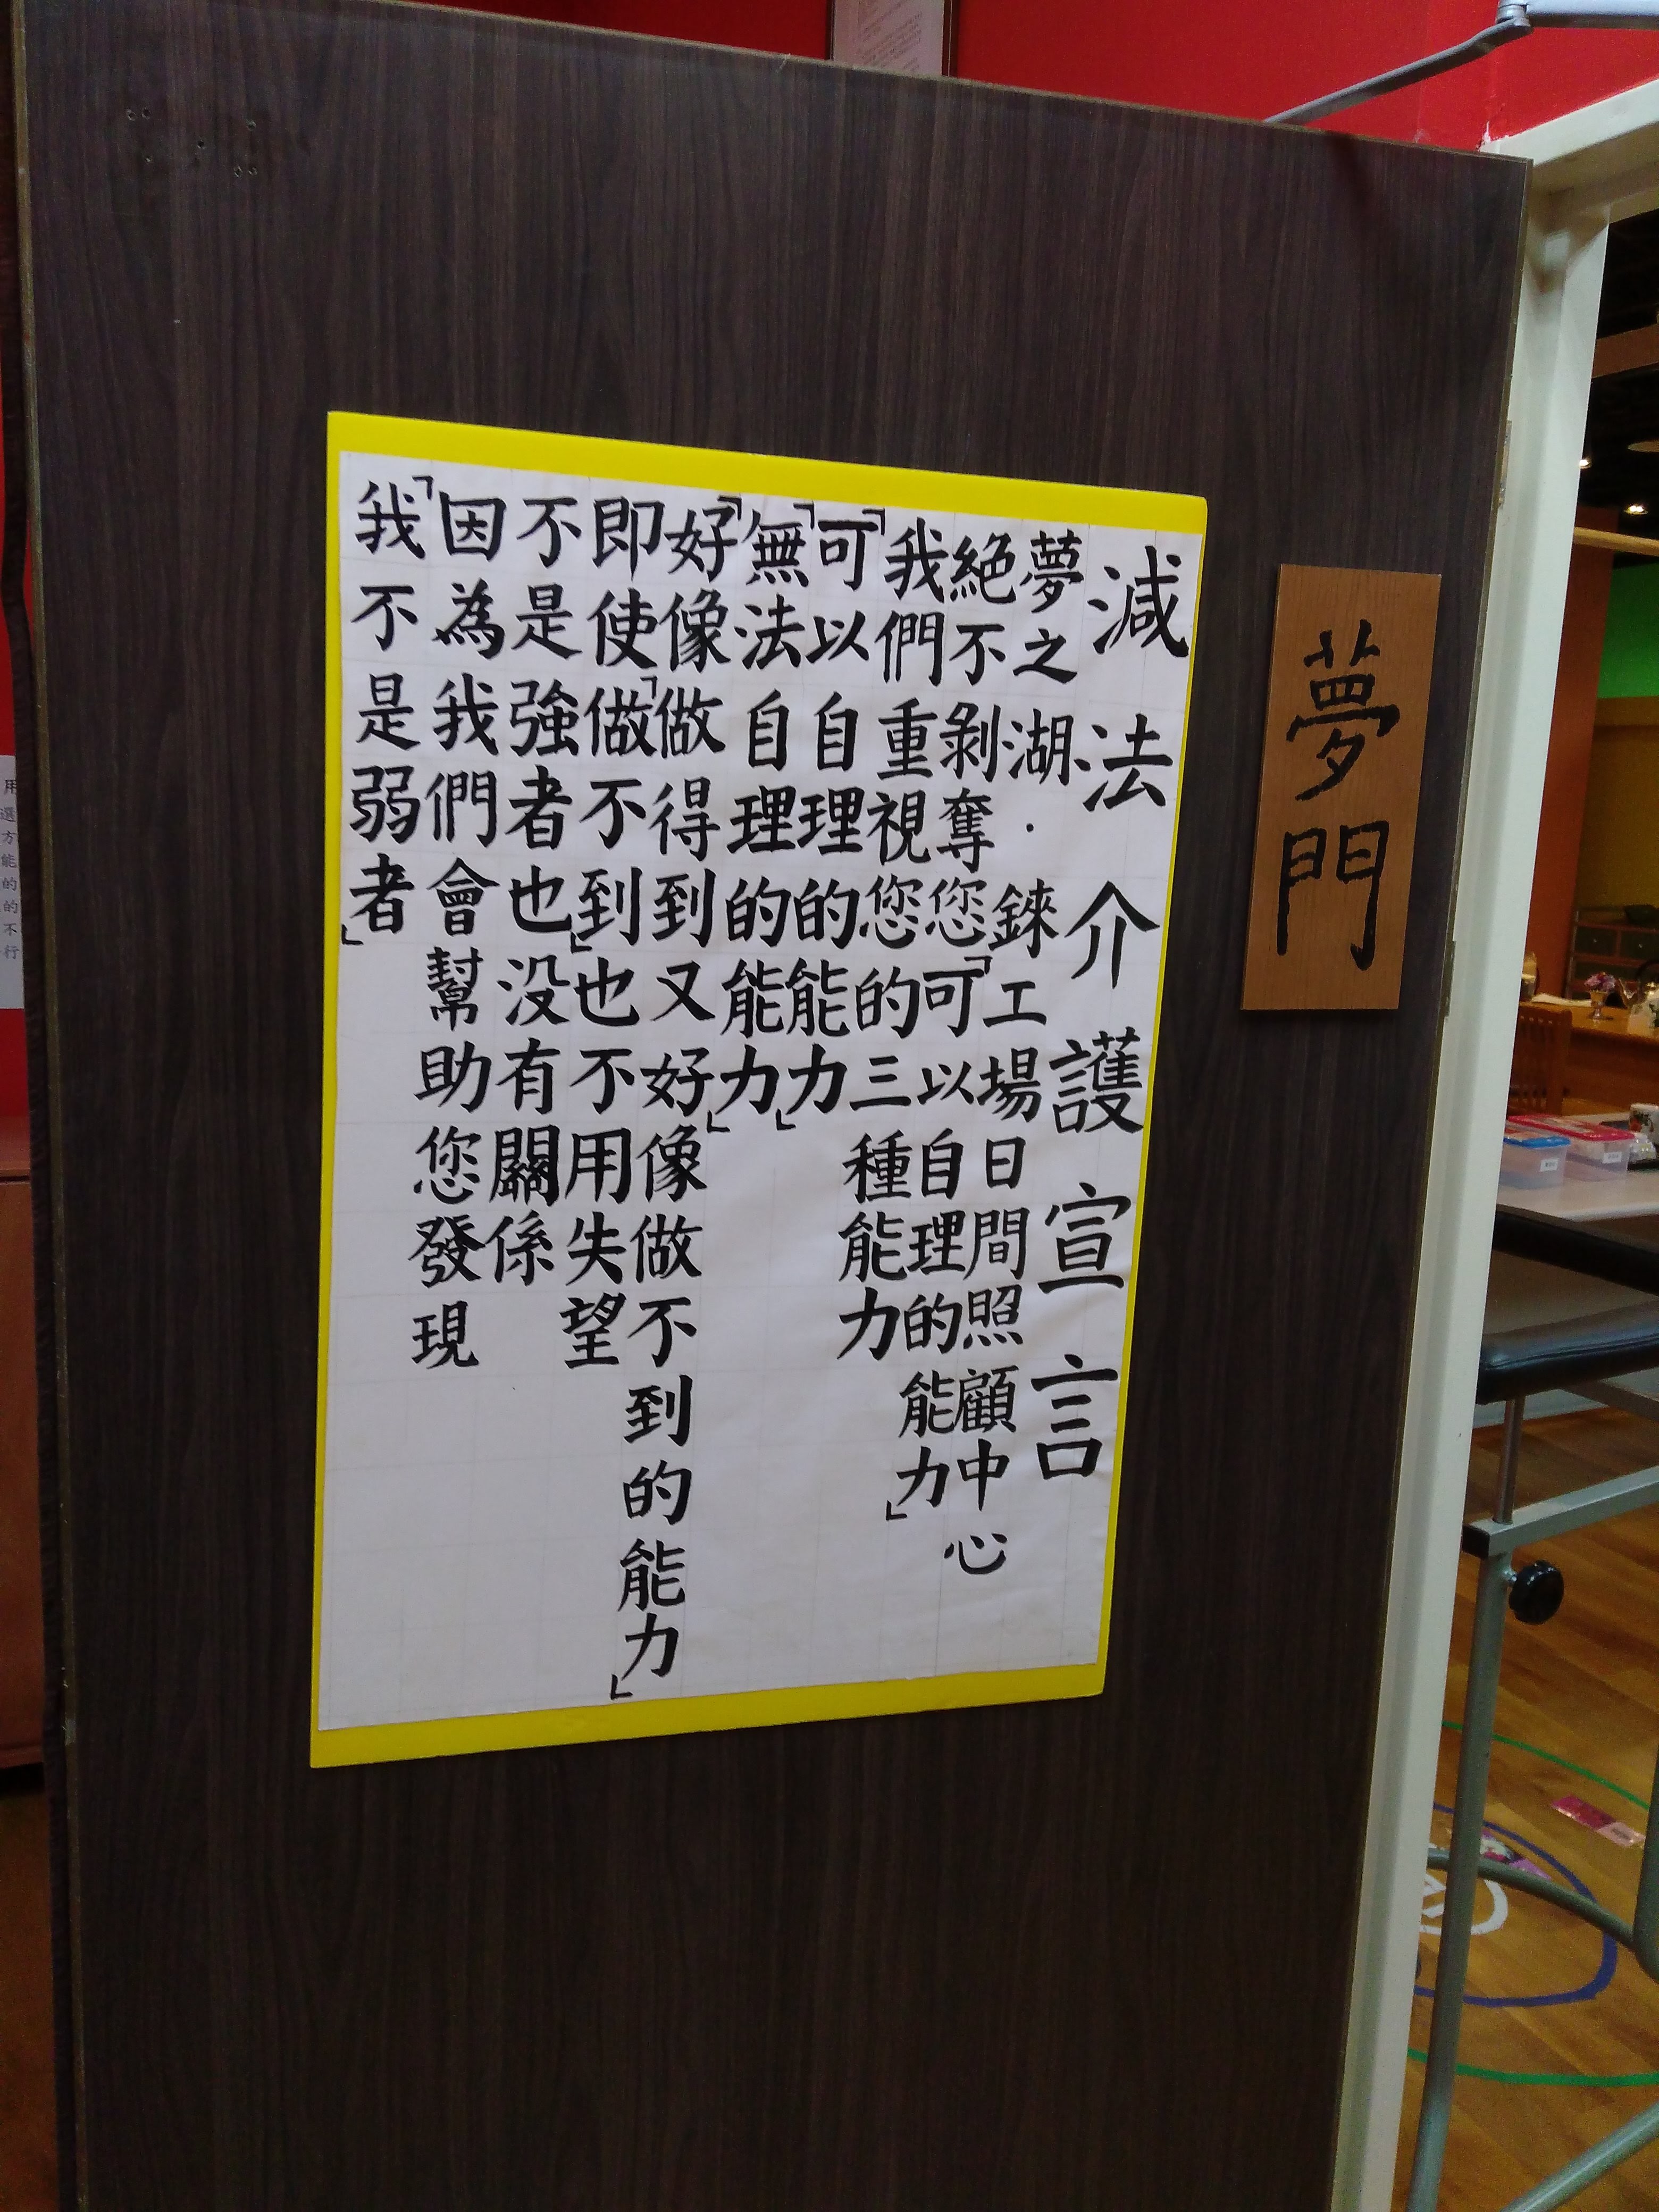 夢門
減法介護宣言
夢之湖·錸工場日間照顧中心
絕不剝奪您「可以自理的能力」
我們重視您的三種能力
「可以自理的能力」
「無法自理的能力」
「好像做得到又好像做不到的能力」
即使「做不到」也不用失望
不是強者也没有關係
因為我們會幫助您發現
「我不是弱者」
用
選
方
能
的
的
不
行